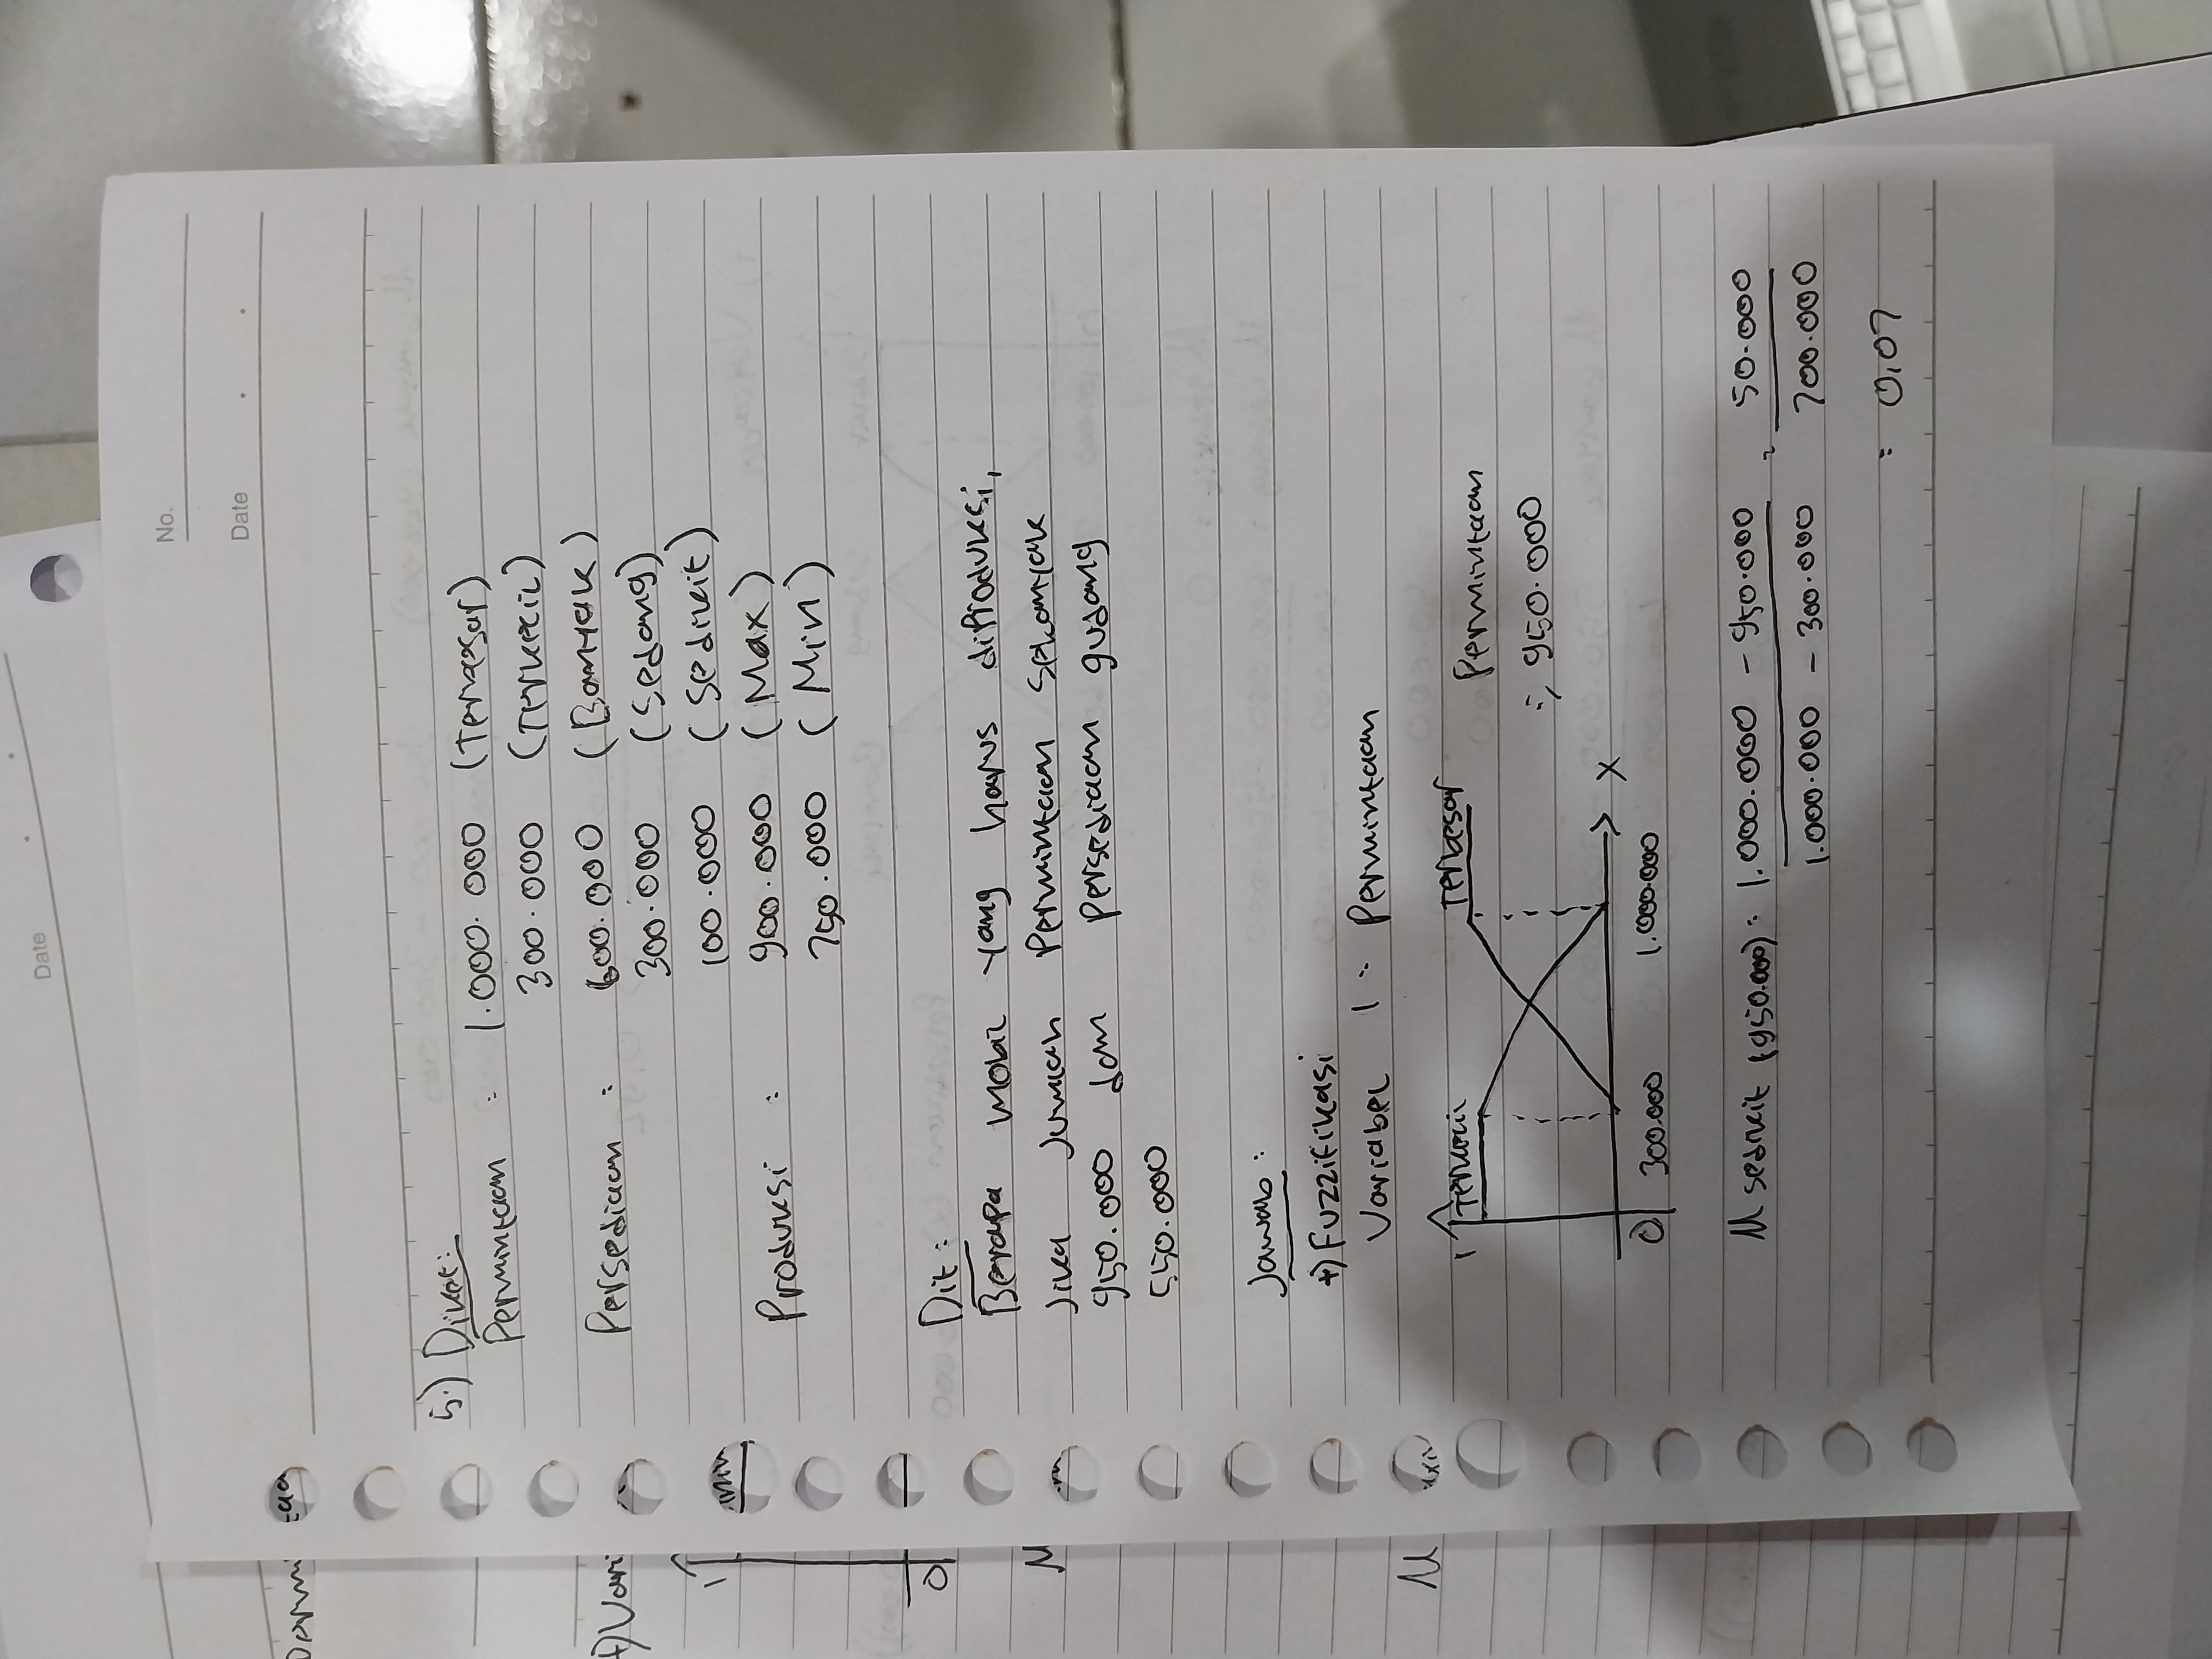 Date
No.
Date
5.) Diket:
Permintaan : 1.000.000 (Terbesar)
300.000 (Terkecil)
Persediaan : 600.000 (Banyak)
300.000 (Sedang)
100.000 (Sedikit)
Produksi : 900.000 (Max)
750.000 (Min)
Dit:
Berapa mobil yang harus diproduksi,
Jika Jumlah Permintaan sebanyak
950.000 dan Persediaan gudang
550.000
Jawab:
+) Fuzzifikasi
Variabel 1 : Permintaan
1 Terkecil Terbesar
Permintaan
= 950.000
X
0 300.000 1.000.000
M sedikit (950.000) = 1.000.000 - 950.000 = 50.000
1.000.000 - 300.000 700.000
= 0,07
+) Vari
1
0
M
M